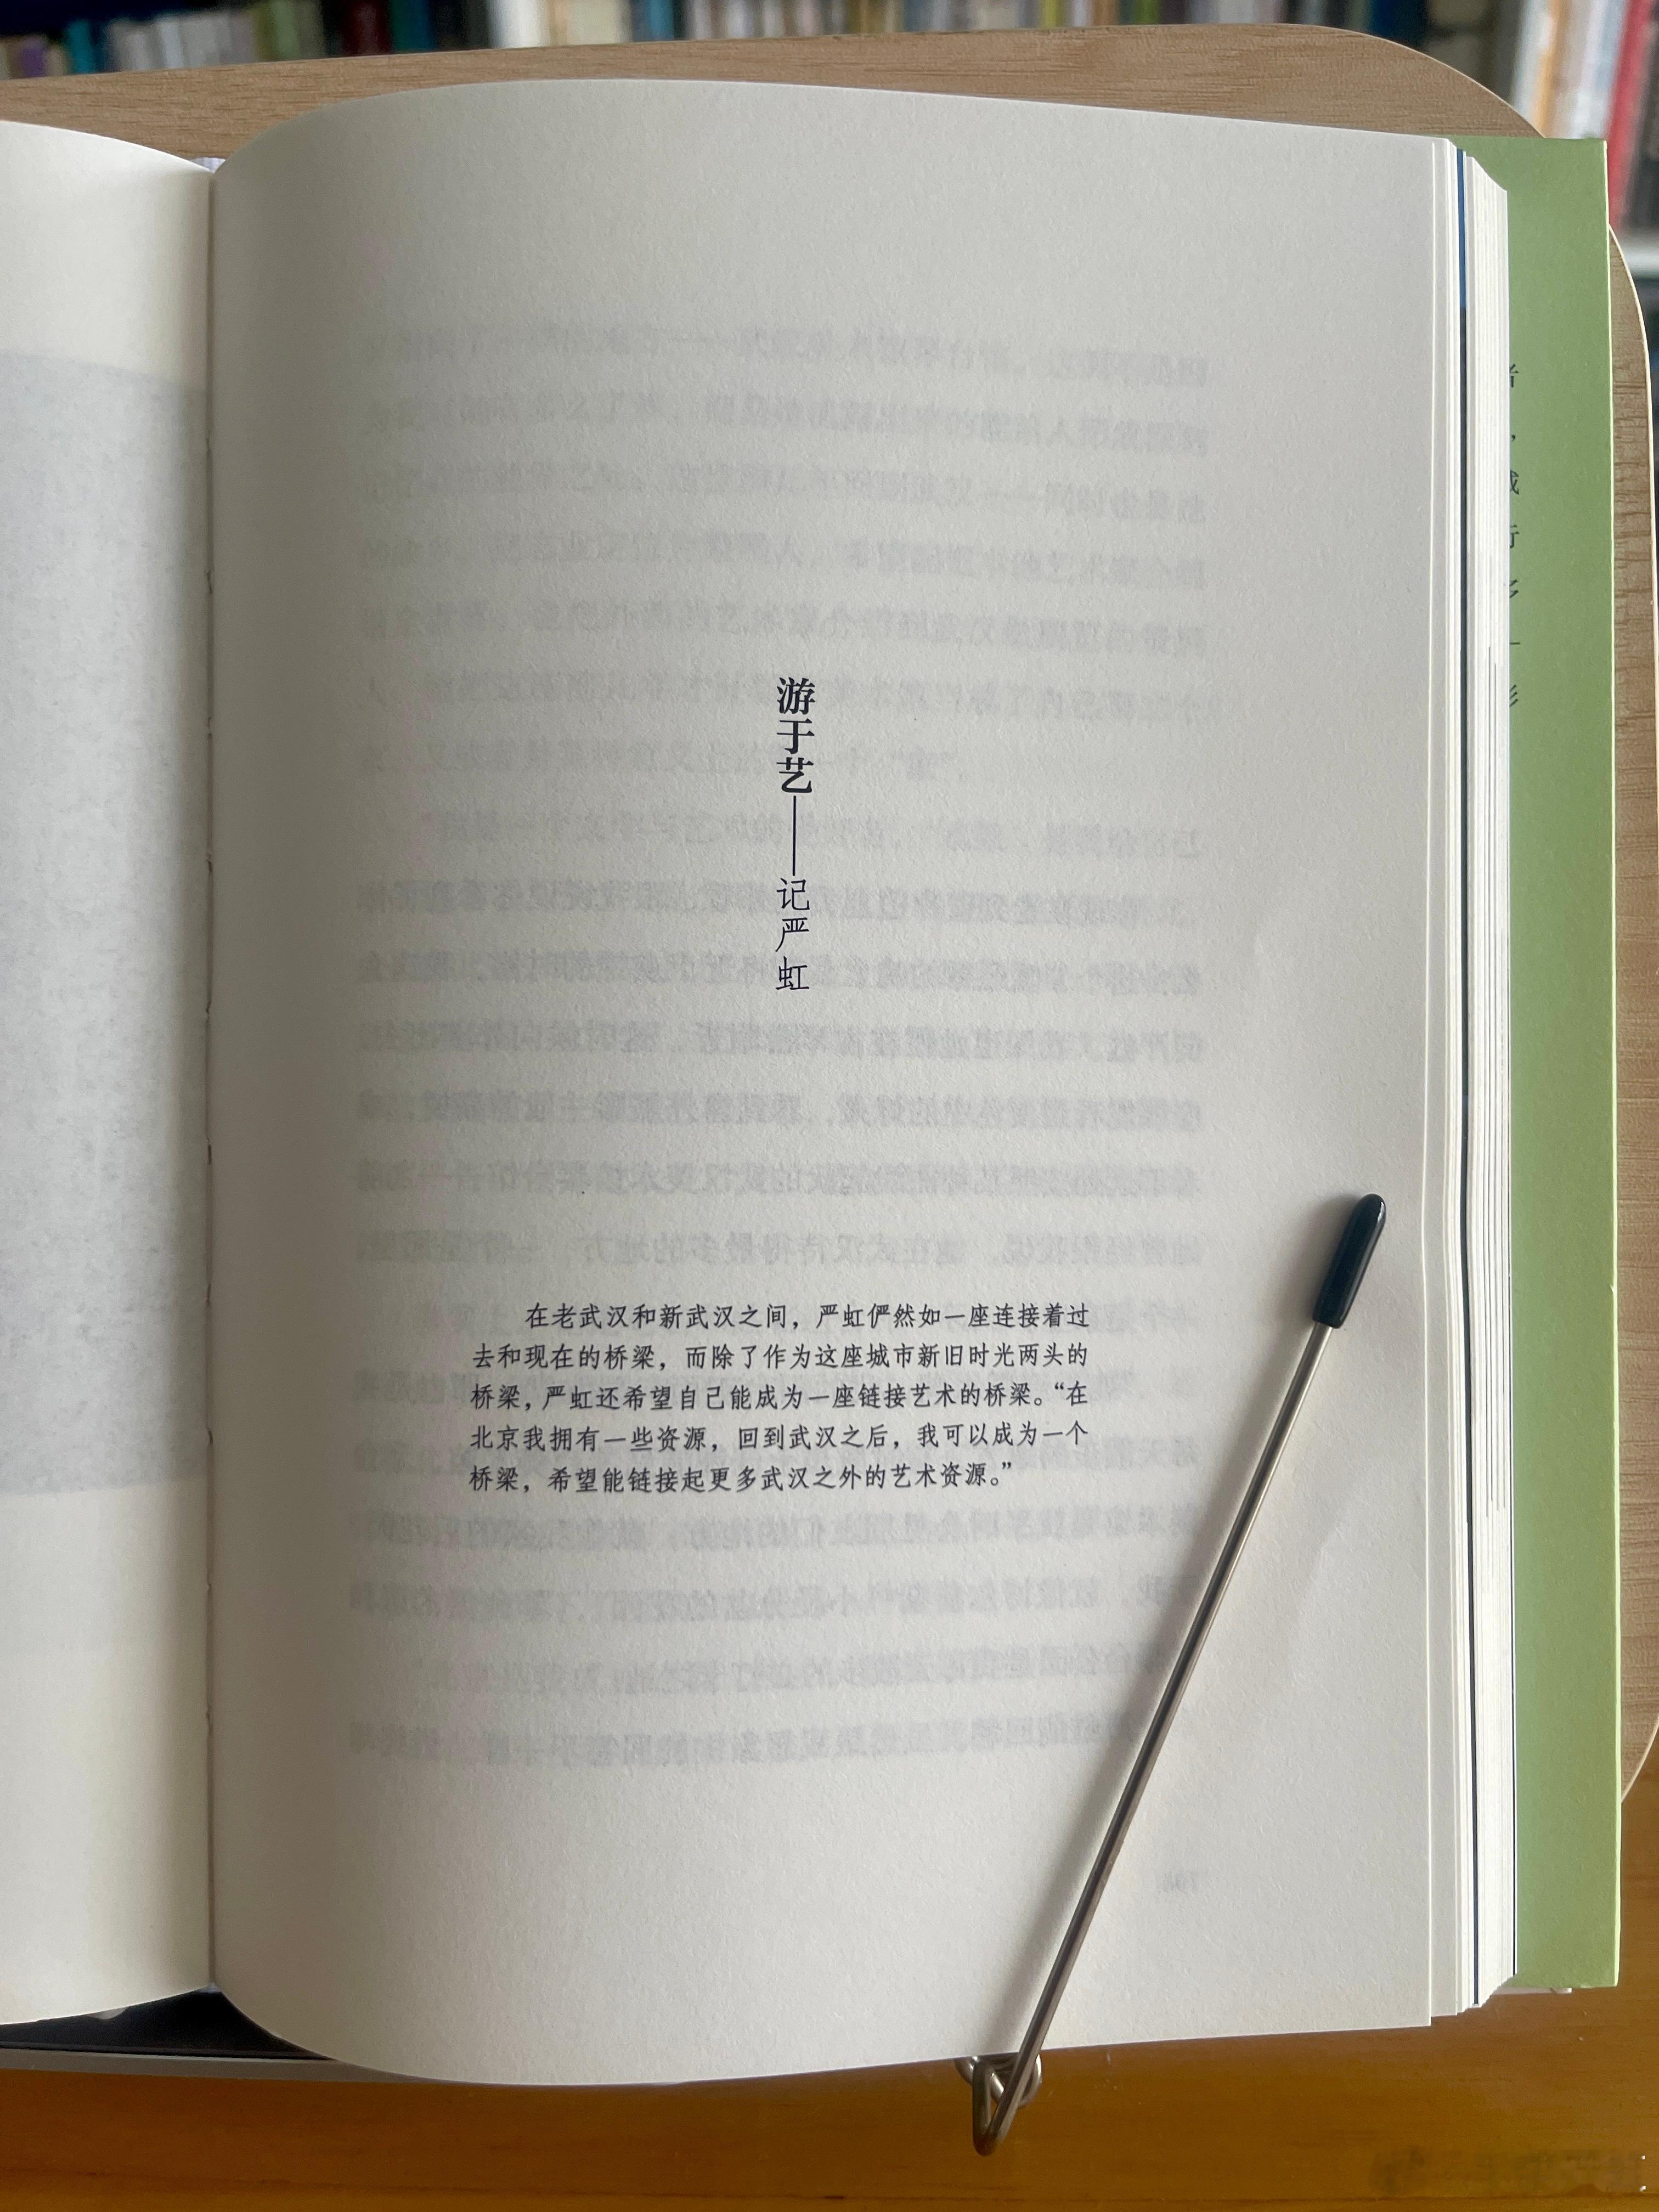 游于艺——记严虹
在老武汉和新武汉之间，严虹俨然如一座连接着过
去和现在的桥梁，而除了作为这座城市新旧时光两头的
桥梁，严虹还希望自己能成为一座链接艺术的桥梁。“在
北京我拥有一些资源，回到武汉之后，我可以成为一个
桥梁，希望能链接起更多武汉之外的艺术资源。”